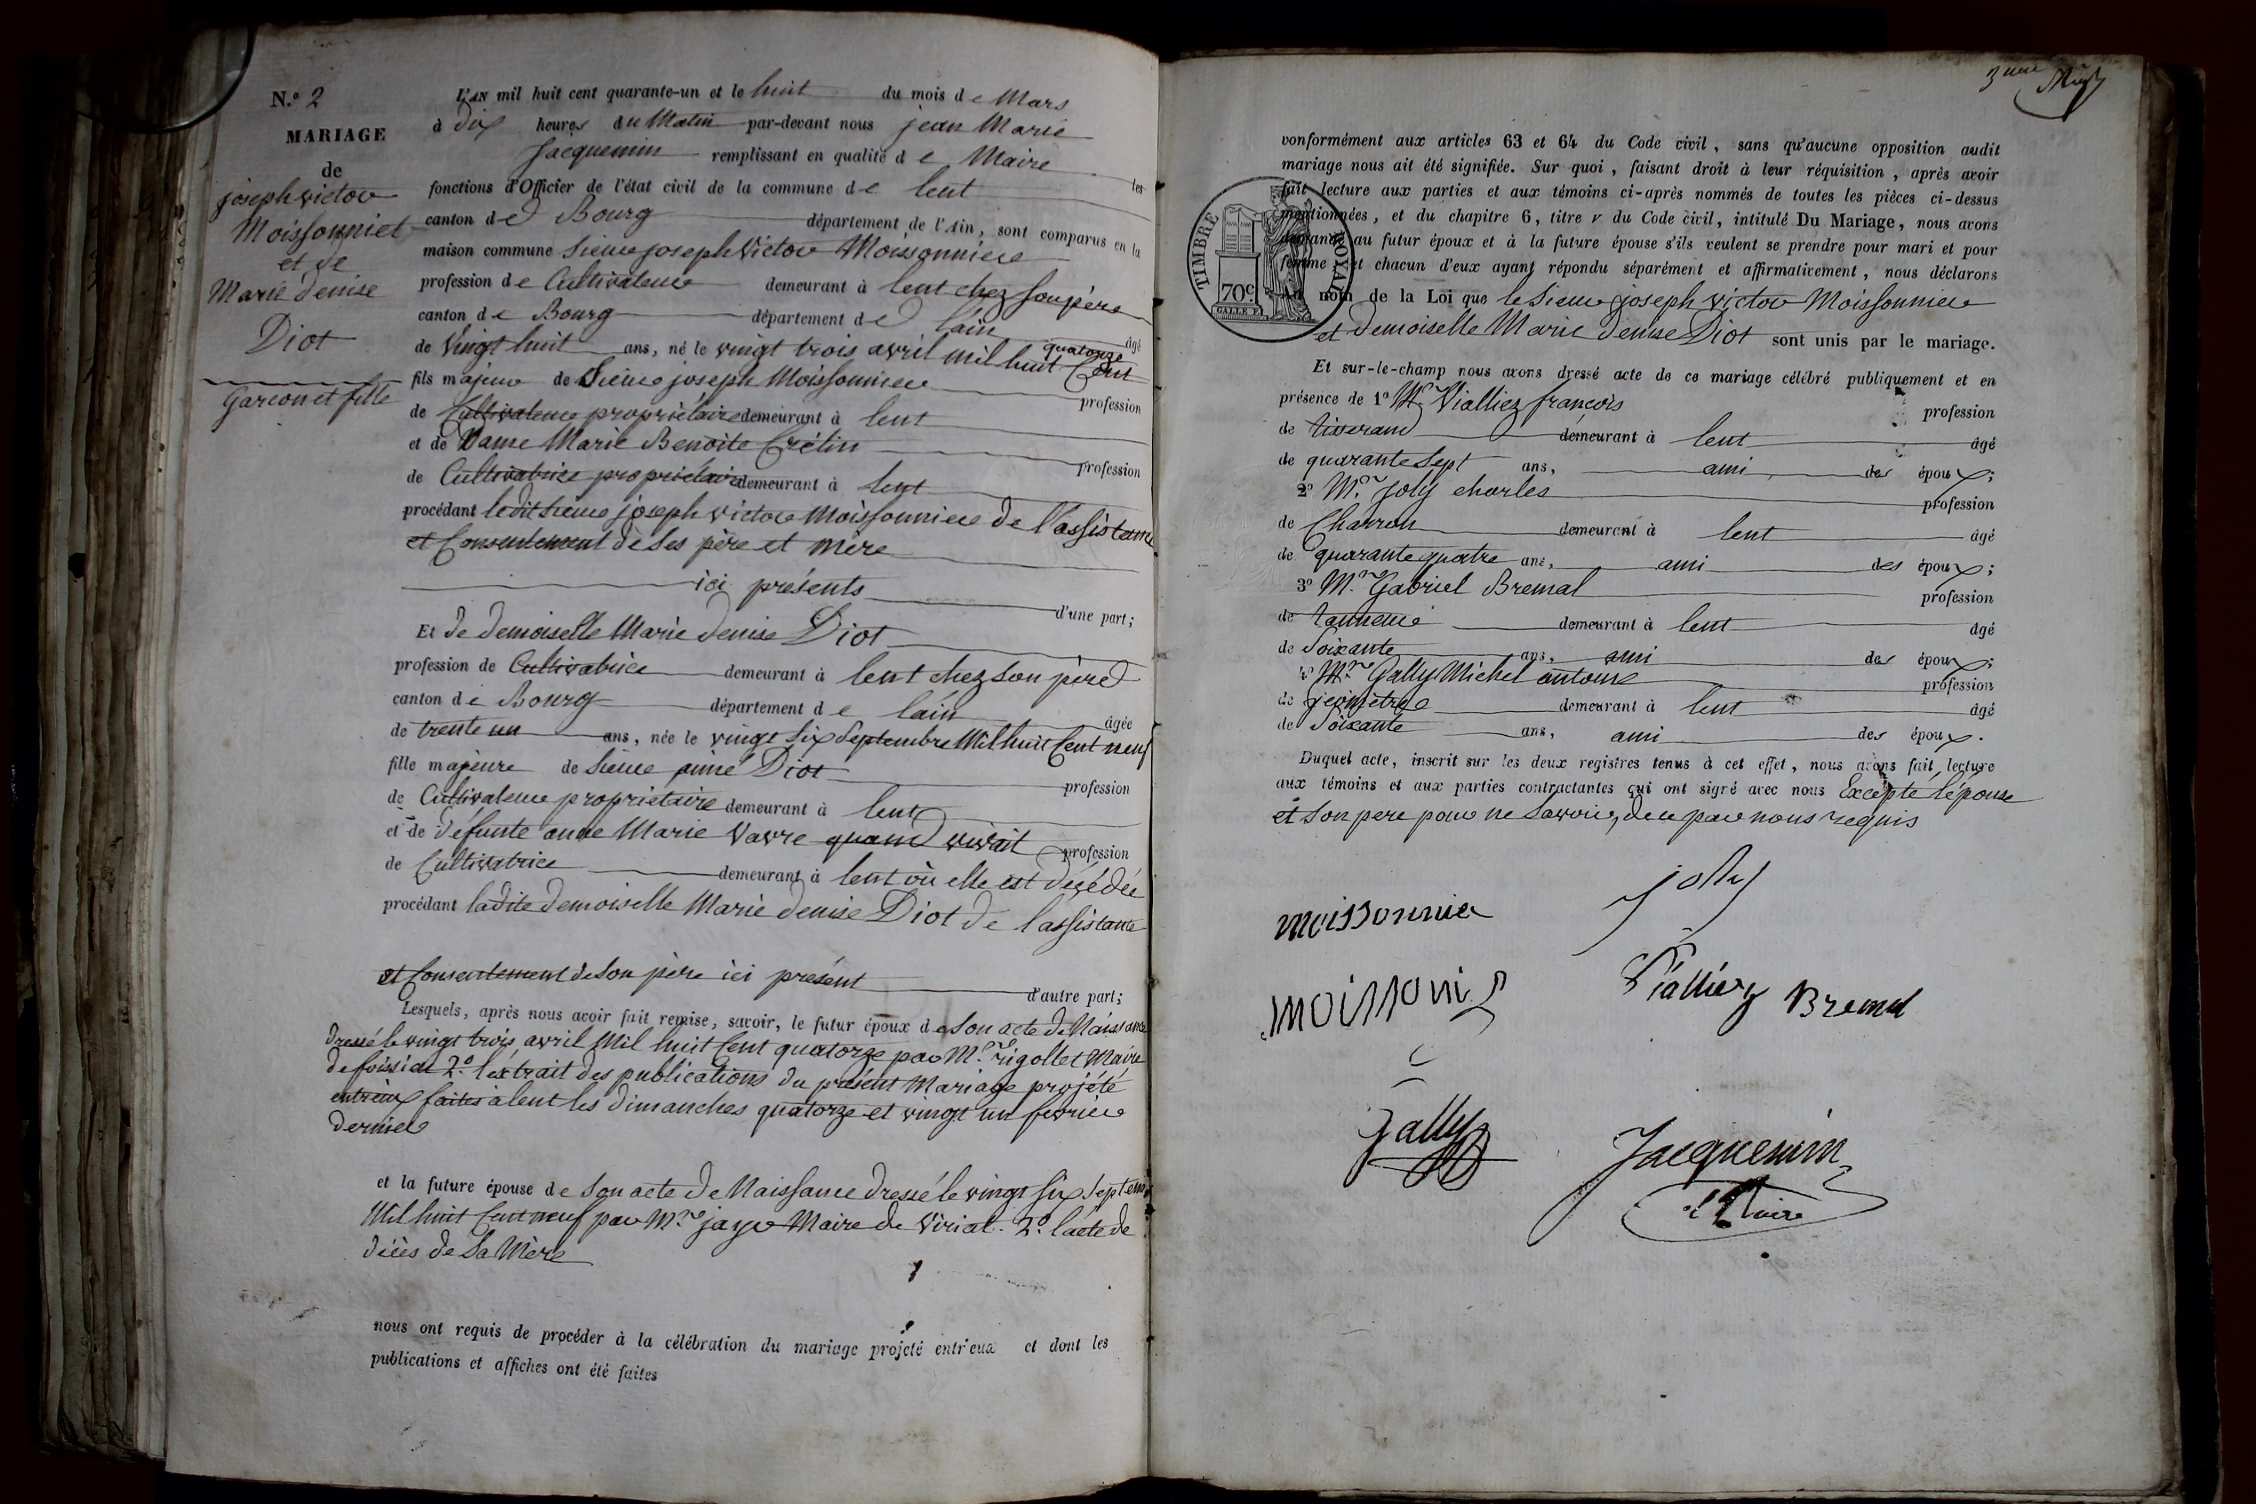 N.º 2
MARIAGE
de
joseph victor
Moissonnier
et de
Marie denise
Diot
Garcon et fille
L'AN mil huit cent quarante-un et le huit du mois de Mars
à dix heures du Matin par-devant nous jean Marie
Jacquemin remplissant en qualité de Maire les
fonctions d'Officier de l'état civil de la commune de lent
canton de Bourg département de l'Ain, sont comparus en la
maison commune Sieur joseph Victor Moissonnier
profession de Cultivateur demeurant à lent chez Son père
canton de Bourg département de l'ain âgé
de Vingt huit ans, né le vingt trois avril mil huit Cent quatorze
fils majeur de Sieur joseph Moissonnier profession
de Cultivateur propriétaire demeurant à lent
et de Dame Marie Benoite Crétin profession
de Cultivatrice propriétaire demeurant à lent
procédant ledit Sieur joseph victor Moissonnier de l'assistance
et Consentement de Ses père et mère
ici présents d'une part;
Et de demoiselle Marie denise Diot
profession de Cultivatrice demeurant à lent chez Son père
canton de Bourg département de l'ain âgée
de trente un ans, née le vingt Six Septembre Mil huit Cent neuf
fille majeure de Sieur aimé Diot profession
de Cultivateur propriétaire demeurant à lent
et de défunte anne Marie Vavre quand vivait profession
de Cultivatrice demeurant à lent où elle est décédée
procédant ladite demoiselle Marie denise Diot de l'assistance
et Consentement de Son père ici présent d'autre part;
Lesquels, après nous avoir fait remise, savoir, le futur époux de Son acte de Naissance
dressé le vingt trois avril Mil huit Cent quatorze par M.r rigollet Maire
de foissiat 2.º l'extrait des publications du présent Mariage projété
entr'eux faites à lent les dimanches quatorze et vingt un fevrier
dernier
et la future épouse de Son acte de Naissance dressé le vingt Six Septembre
Mil huit Cent neuf par M.r jayr Maire de Viriat. 2.º l'acte de
décès de Sa Mère
nous ont requis de procéder à la célébration du mariage projeté entr'eux et dont les
publications et affiches ont été faites
3eme
conformément aux articles 63 et 64 du Code civil, sans qu'aucune opposition audit
mariage nous ait été signifiée. Sur quoi, faisant droit à leur réquisition, après avoir
fait lecture aux parties et aux témoins ci-après nommés de toutes les pièces ci-dessus
mentionnées, et du chapitre 6, titre v du Code civil, intitulé Du Mariage, nous avons
demandé au futur époux et à la future épouse s'ils veulent se prendre pour mari et pour
femme et chacun d'eux ayant répondu séparément et affirmativement, nous déclarons
au nom de la Loi que le Sieur joseph victor Moissonnier
et demoiselle Marie denise Diot sont unis par le mariage.
TIMBRE ROYAL
70c
GALLE F.
Et sur-le-champ nous avons dressé acte de ce mariage célébré publiquement et en
présence de 1º M.r Vialliez françois profession
de tisserand demeurant à lent âgé
de quarante Sept ans, ami des époux;
2º M.r Joly charles profession
de Charron demeurant à lent âgé
de quarante quatre ans, ami des époux;
3º M.r Gabriel Bremal profession
de tanneur demeurant à lent âgé
de Soixante ans, ami des époux;
4º M.r Gally Michel antoine profession
de géomètre demeurant à lent âgé
de Soixante ans, ami des époux.
Duquel acte, inscrit sur les deux registres tenus à cet effet, nous avons fait lecture
aux témoins et aux parties contractantes qui ont signé avec nous Excepté l'épouse
et Son pere pour ne Savoir, de ce par nous requis
jolly
moissonnier
Vialliez Bremal
moissonier
Gally
Jacquemin
Maire